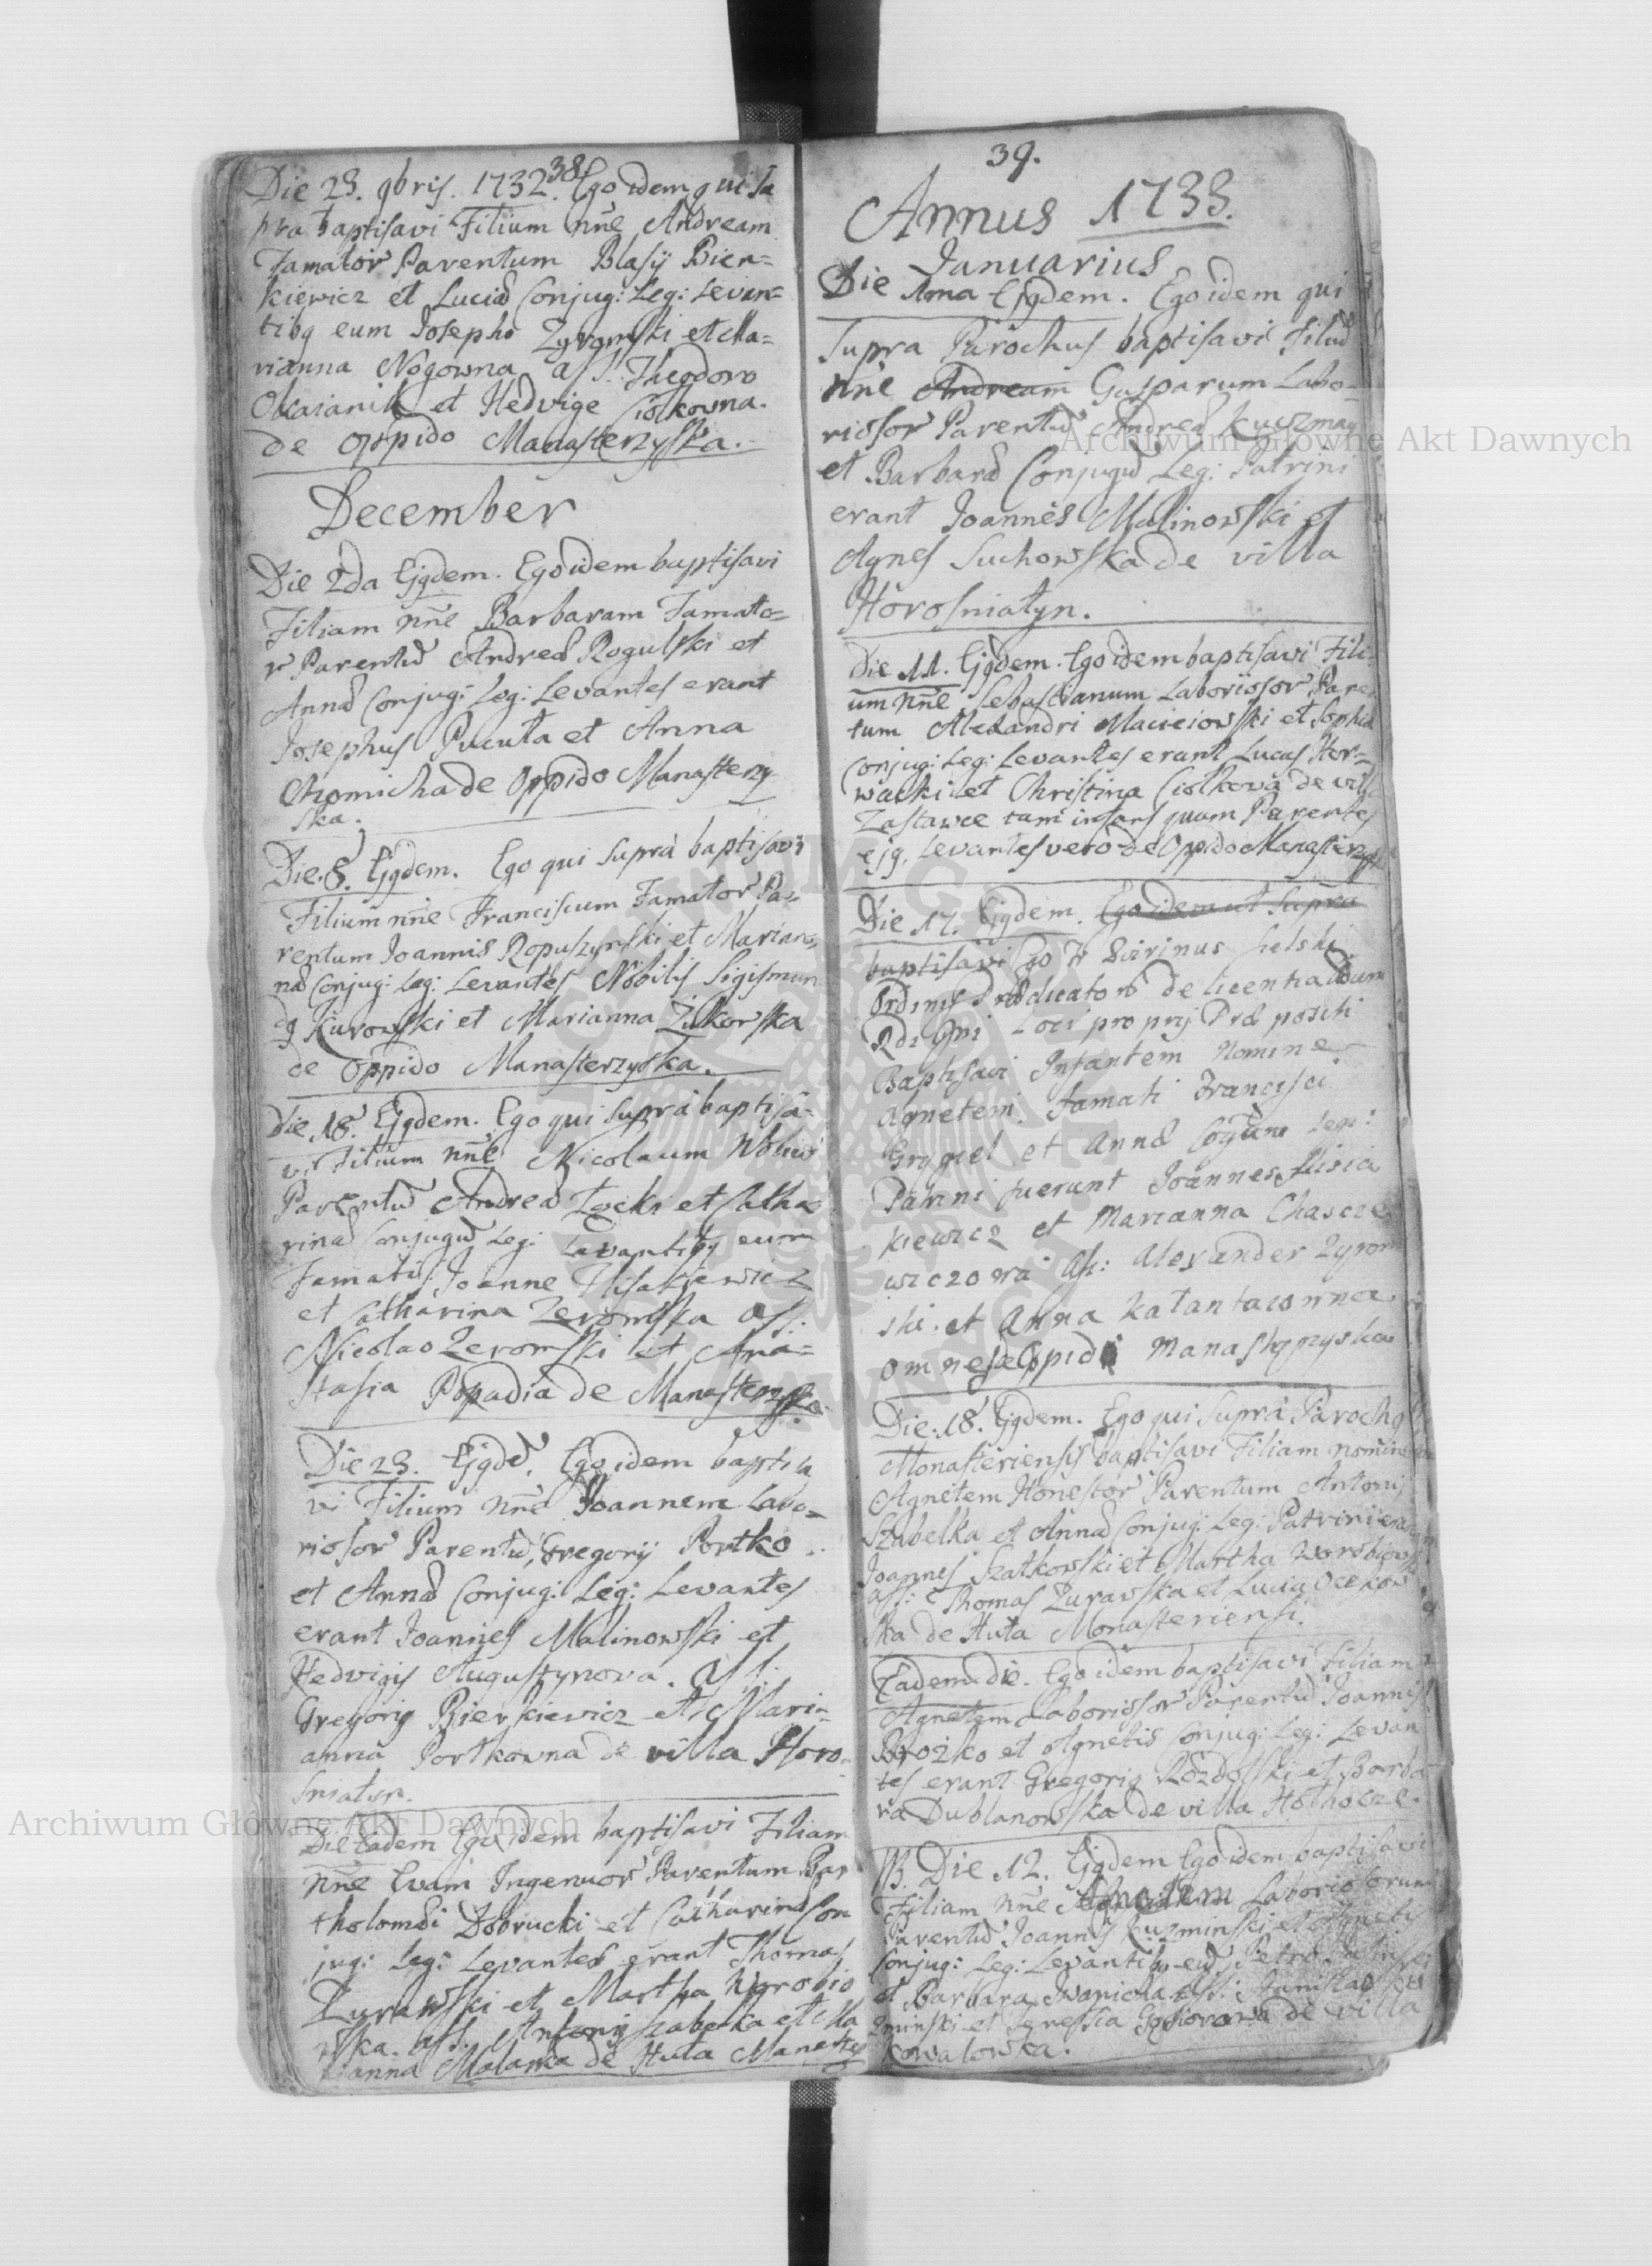 38.
Die 23. 9bris. 1732. Ego idem qui su
pra baptisavi Filium nñe Andream
Famator Parentum Blasij Bien=
kiewicz et Luciæ Conjug: Leg: Levan=
tibq eum Josepho Zyromski et Ma=
rianna Nogowna ass: Theodoro
et Hedvige Ciołkowna.
de Oppido Manasterzyska.
December
Die 2da Ejqdem. Ego idem baptisavi
Filiam nñe Barbaram Famato=
r Parentũ Andreæ Rogulski et
Annæ Conjug: Leg: Levantes erant
Josephus Pucuła et Anna
de Oppido Manasterzy
ska.
Die 8. Ejqdem. Ego qui suprà baptisavi
Filium nñe Franciscum Famator Pa=
rentum Joannis Ropuszynski et Marian=
næ Conjug: Leg: Levantes Nobilis Sigismun
dq Kurowski et Marianna Zulkowska
de Oppido Manasterzyska.
Die 18. Ejqdem. Ego qui suprà baptisa=
vi Filium nñe Nicolaum
Parentũ Andreæ Łocki et Catha
rinæ Conjugũ Leg: Levantibq eum
Famatis Joanne Ilisakiewicz
et Catharina Zeromska ass:
Nicolao Zeromski et Ana=
stasia Popadia de Manasterzyska.
Die 23. Ejqdẽ. Ego idem baptisa
vi Filium nñe Joannem Labo=
riosor Parentũ Gregorij Portko
et Annæ Conjug: Leg: Levantes
erant Joannes Malinowski et
Hedvigis Augustynova. Ass:
Gregoriq Bienkiewicz et Mari=
anna Portkowna de villa Horo=
sniatyn.
Die Eadem Ego idem baptisavi Filiam
nñe Evam Ingenuor Parentum Bar
tholomæi Dobrucki et Catharinæ Con
jug: Leg: Levantes erant Thomas
Zurawski et Martha Wrobio
wska. ass: Antoniq Szabelka et Ma
rianna Malarka de Huta Manaster
Archiwum Główne Akt Dawnych
39.
Annus 1733.
Januarius
Die 1ma Ejqdem. Ego idem qui
supra Parochus baptisavi Filiũ
nñe Andream Gasparum Labo=
riosor Parentũ Andreæ Kuczmay
et Barbaræ Conjugũ Leg: Patrini
erant Joannes Malinowski et
Agnes Suchowska de villa
Horosniatyn.
Die 11. Ejqdem. Ego idem baptisavi Fili=
um nñe Sebastianum Laboriosor Paren
tum Alexandri Macieiowski et Sophiæ
Conjug: Leg: Levantes erant Lucas Hor=
wacki et Christina Ciołkowa de villa
Zastawce tam infans quam Parentes
ejq, Levantes vero de Oppido Manasterzys
Die 17. Ejqdem. Ego idem ut supra
baptisavi Ego Fr
Ordinis Prædicatorũ de licentia
Loci proprij Præpositi
Baptisavi Infantem nomine
Agnetem Famati Francisci
Grygiel et Annæ Legi:
Patrini fuerunt Joannes Ilisia
kiewicz et Marianna Chascze
wiczowa Ass: Alexander Zyrom
ski et Anna Katantaiowna
omnes Oppidi Manasterzyska
Die 18. Ejqdem. Ego qui suprà Parochq
Monasteriensis baptisavi Filiam nomine
Agnetem Honestor Parentum Antonij
Szabelka et Annæ Conjug: Leg: Patrini erant
Joannes Szatkowski et Martha Worobiowska
ass: Thomas Zurawska et Lucia Ocekow
ska de Huta Monasteriensi.
Eadem die. Ego idem baptisavi Filiam
Agnetem Laboriosor Parentũ Joannis
Brożko et Agnetis Conjug: Leg: Levan
tes erant Gregoriq Rozdolski et Barba
ra Dublanowska de villa Hołhocze.
NB. Die 12. Ejqdem Ego idem baptisavi
Filiam nñe Agnetem Laboriosorum
Parentũ Joannis Kuzminski et Agnetis
Conjug: Leg: Levantibq eũ Petro
et Barbara Iwanicka ass: Stanislao Ku
zminski et de villa
Kowalowka.
Archiwum Główne Akt Dawnych